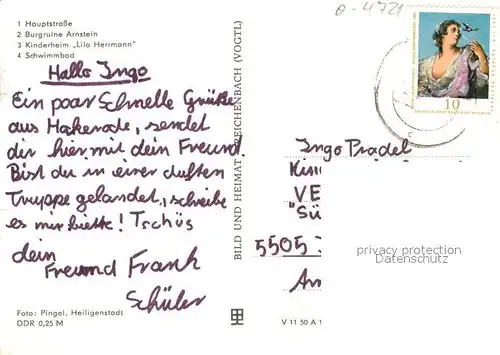 1 Hauptstraße
2 Burgruine Arnstein
3 Kinderheim „Lilo Herrmann"
4 Schwimmbad
Hallo Ingo
Ein paar Schnelle Grüße
aus Hakerode, sendet
dir hier mit dein Freund.
Bist du in einer duften
Truppe gelandet, schreibe
es mir bitte! Tschüs
dein
Freund Frank
Schüler
Foto: Pingel, Heiligenstadt
DDR 0,25 M
BILD UND HEIMAT REICHENBACH (VOGTL)
V 11 50 A 1
0-4721
10
Ingo Pradel
Kin
VE
"Sü
5505
An
privacy protection
akpool.de